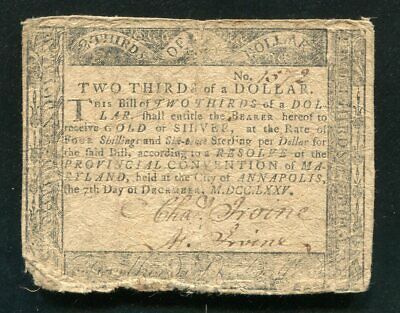 2-THIRDS OF A DOLLAR
No. 1572
TWO THIRDs of a DOLLAR.
THIS Bill of TWO THIRDS of a DOL-
LAR, shall entitle the BEARER hereof to
receive GOLD or SILVER, at the Rate of
FOUR Shillings and Six-pence Sterling per Dollar for
the said Bill, according to a RESOLVE of the
PROVINCIAL CONVENTION of MA-
RYLAND, held at the City of ANNAPOLIS,
the 7th Day of DECEMBER, M.DCC.LXXV.
Irvine
Irvine